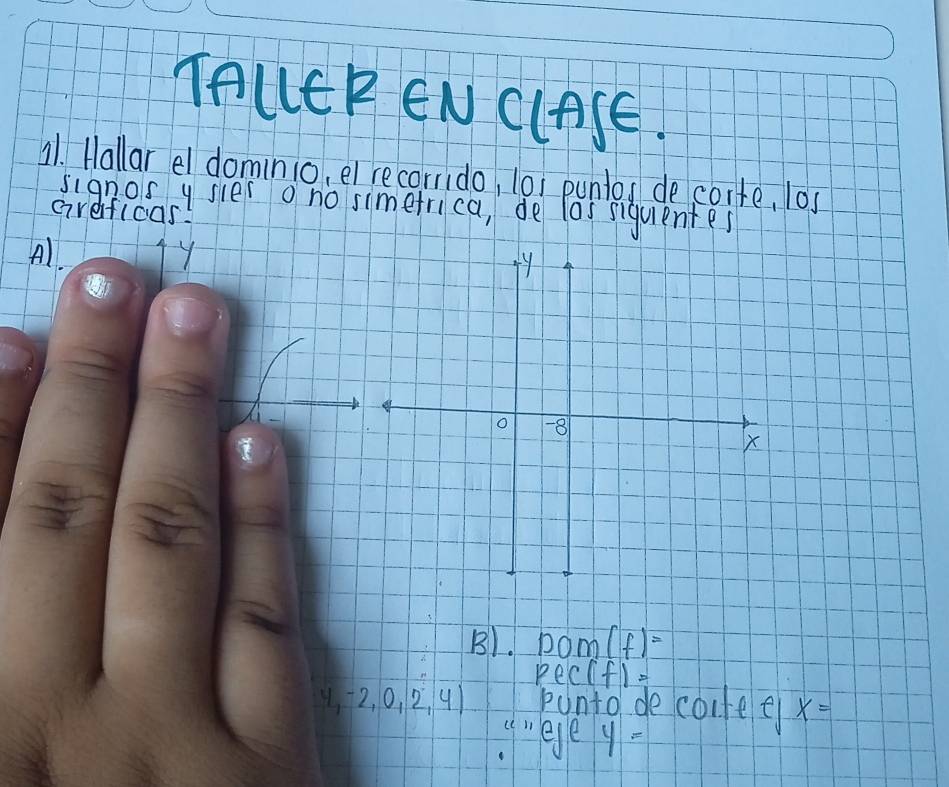 TALLER EN CLASE.
1). Hallar el dominio, el recorrido, los puntos de corte, los
signos y sies o no simetrica, de las siguientes
Graficas:
A).
y
y
0
-8
x
B). Dom(f)=
Rec(f)=
4, -2, 0, 2, 4)
Punto de corte ej x=
" " eje y =